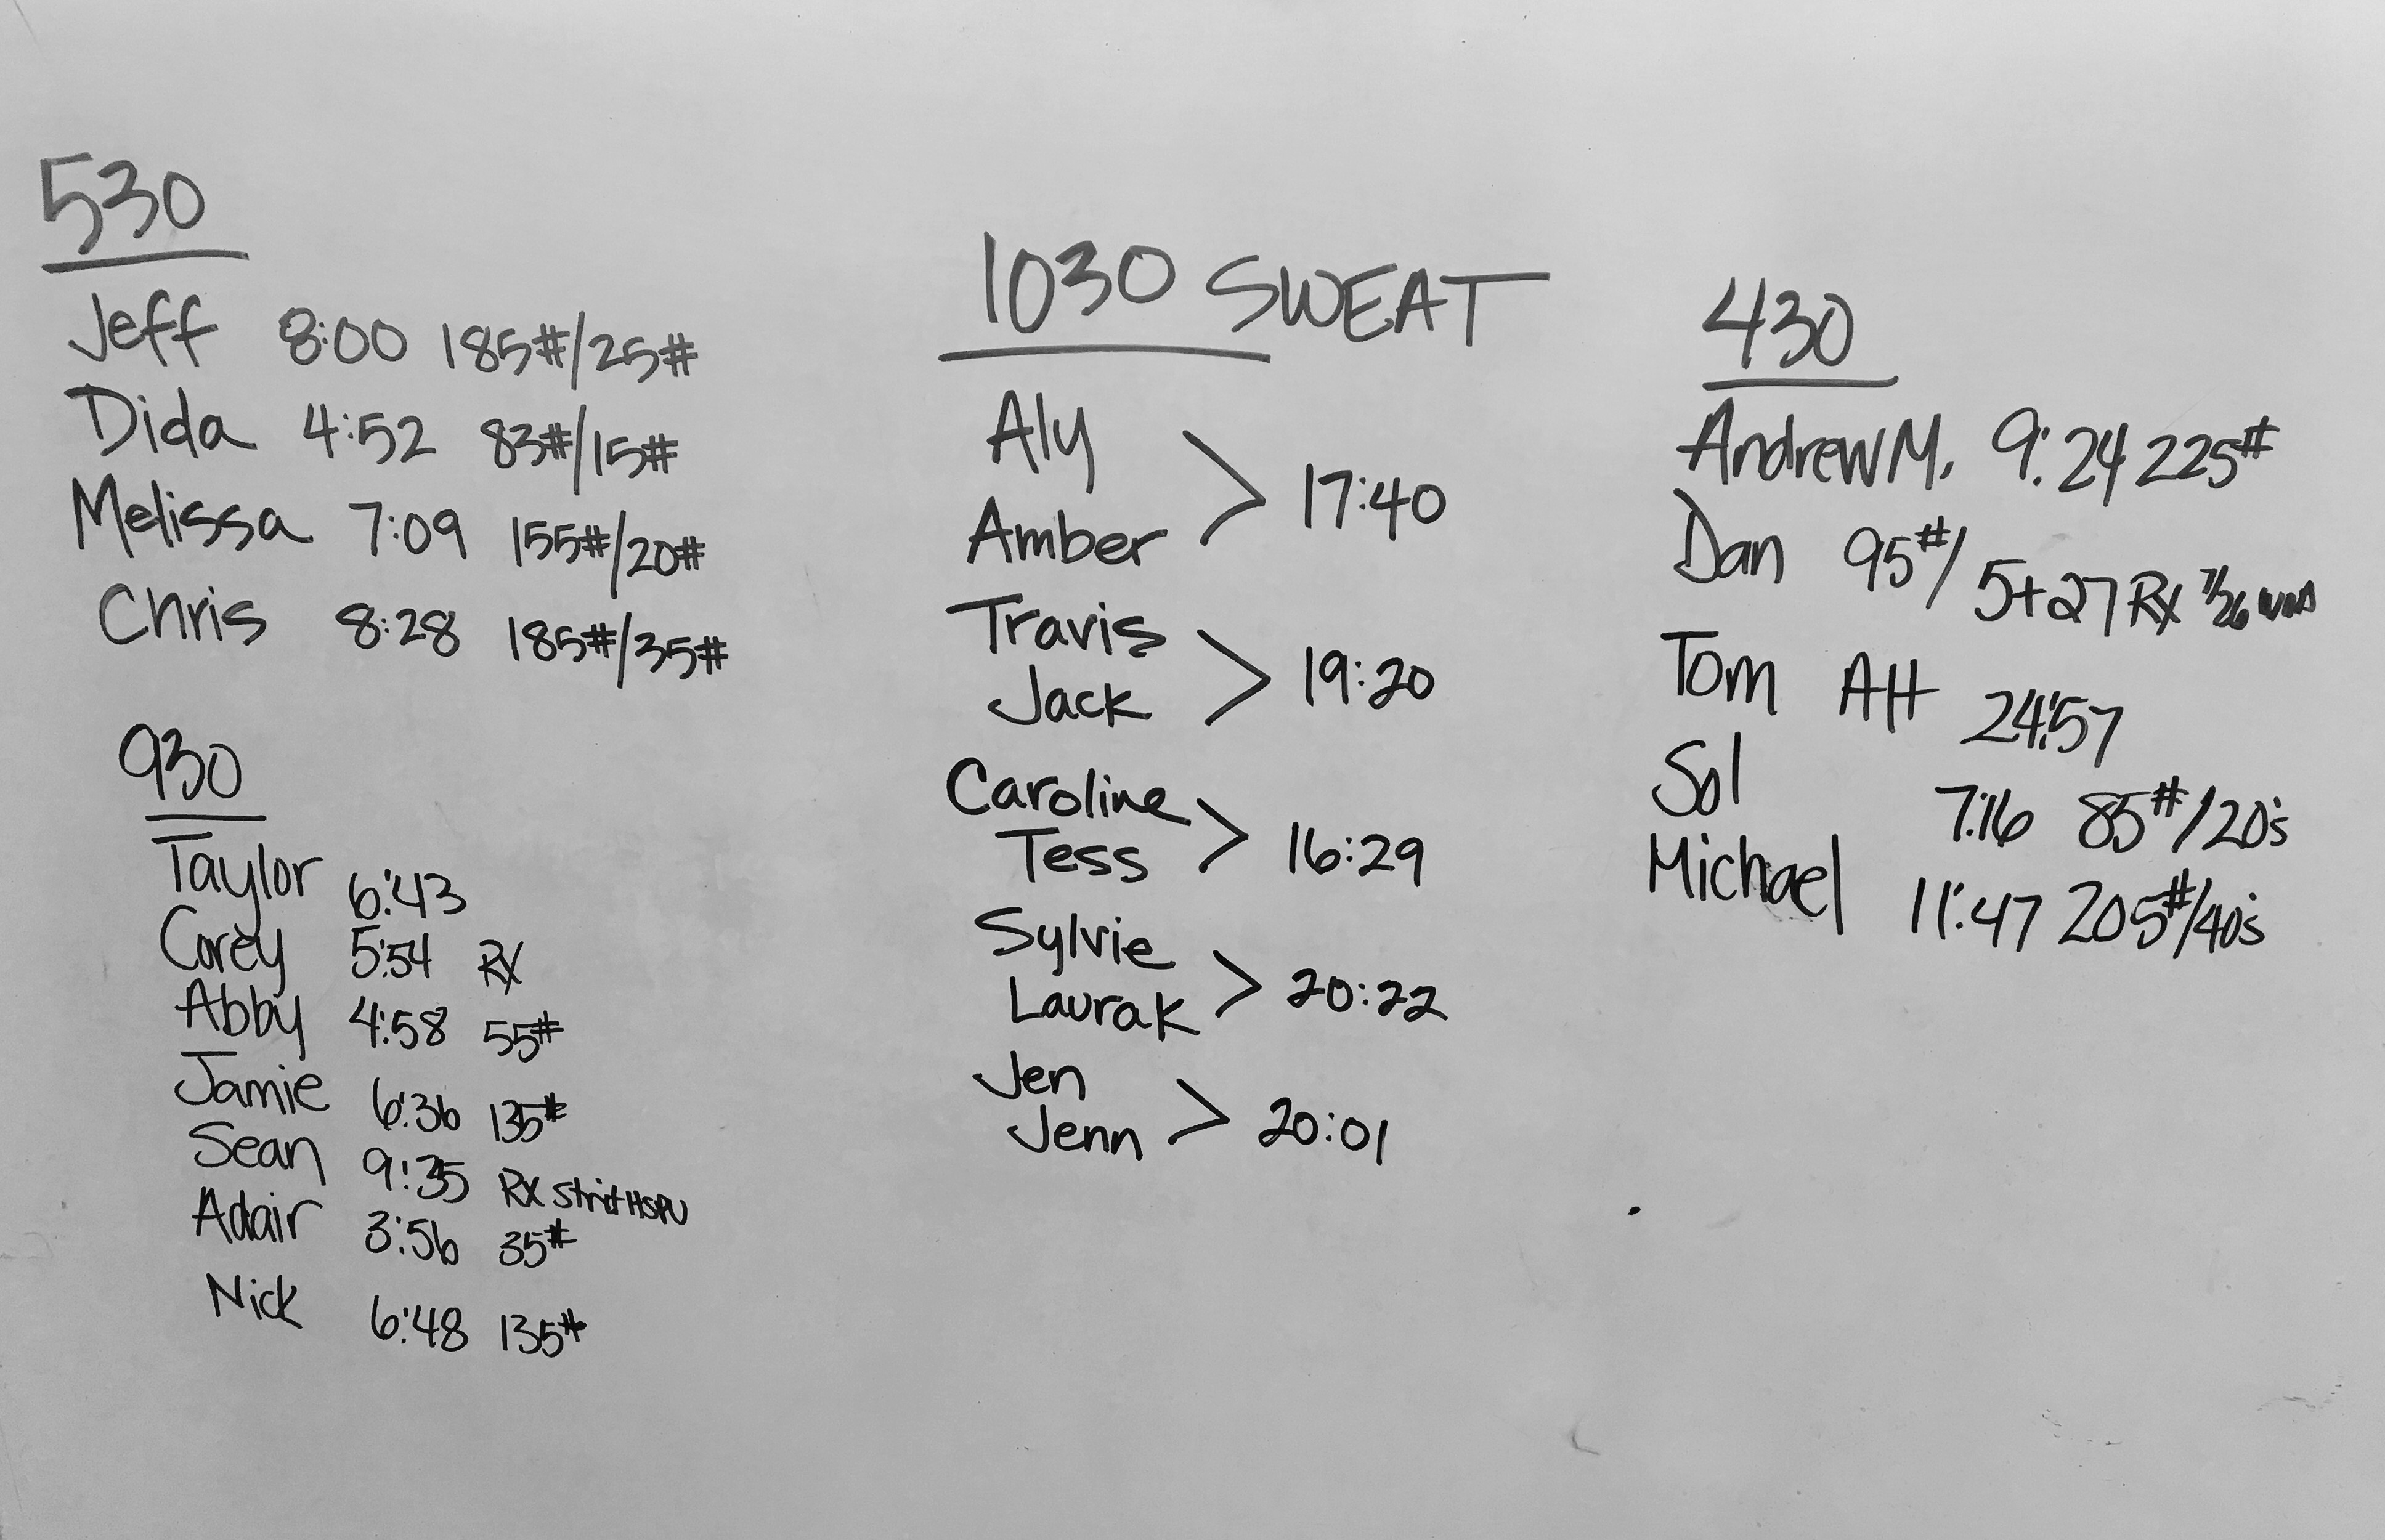 530
Jeff 8:00 185#/25#
Dida 4:52 83#/15#
Melissa 7:09 155#/20#
Chris 8:28 185#/35#
930
Taylor 6:43
Corey 5:54 RX
Abby 4:58 55#
Jamie 6:36 135#
Sean 9:35 RX Strict HSPU
Adair 3:56 35#
Nick 6:48 135#
1030 SWEAT
Aly
Amber > 17:40
Travis
Jack > 19:20
Caroline
Tess > 16:29
Sylvie
Laura K > 20:22
Jen
Jenn > 20:01
430
Andrew M. 9:24 225#
Dan 95#/5+27 RX 7/26
Tom AH 24:57
Sol 7:16 85#/20's
Michael 11:47 205#/40's